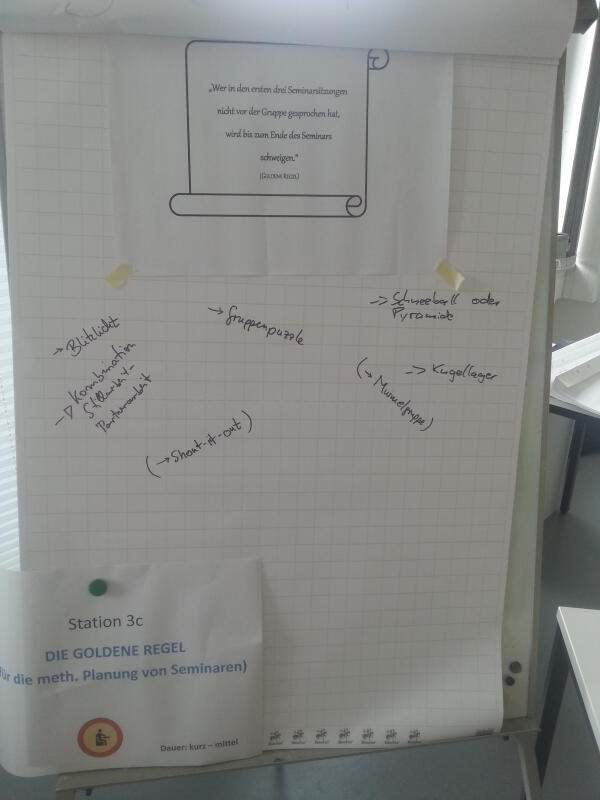 „Wer in den ersten drei Seminarsitzungen
nicht vor der Gruppe gesprochen hat,
wird bis zum Ende des Seminars
schweigen.“
(GOLDENE REGEL)
→ Schneeball oder
Pyramide
→ Gruppenpuzzle
→ Blitzlicht
→ Kombination
Stillarbeit-
Partnerarbeit
→ Kugellager
(→ Murmelgruppe)
(→ Shout-it-out)
Station 3c
DIE GOLDENE REGEL
für die meth. Planung von Seminaren)
Dauer: kurz – mittel